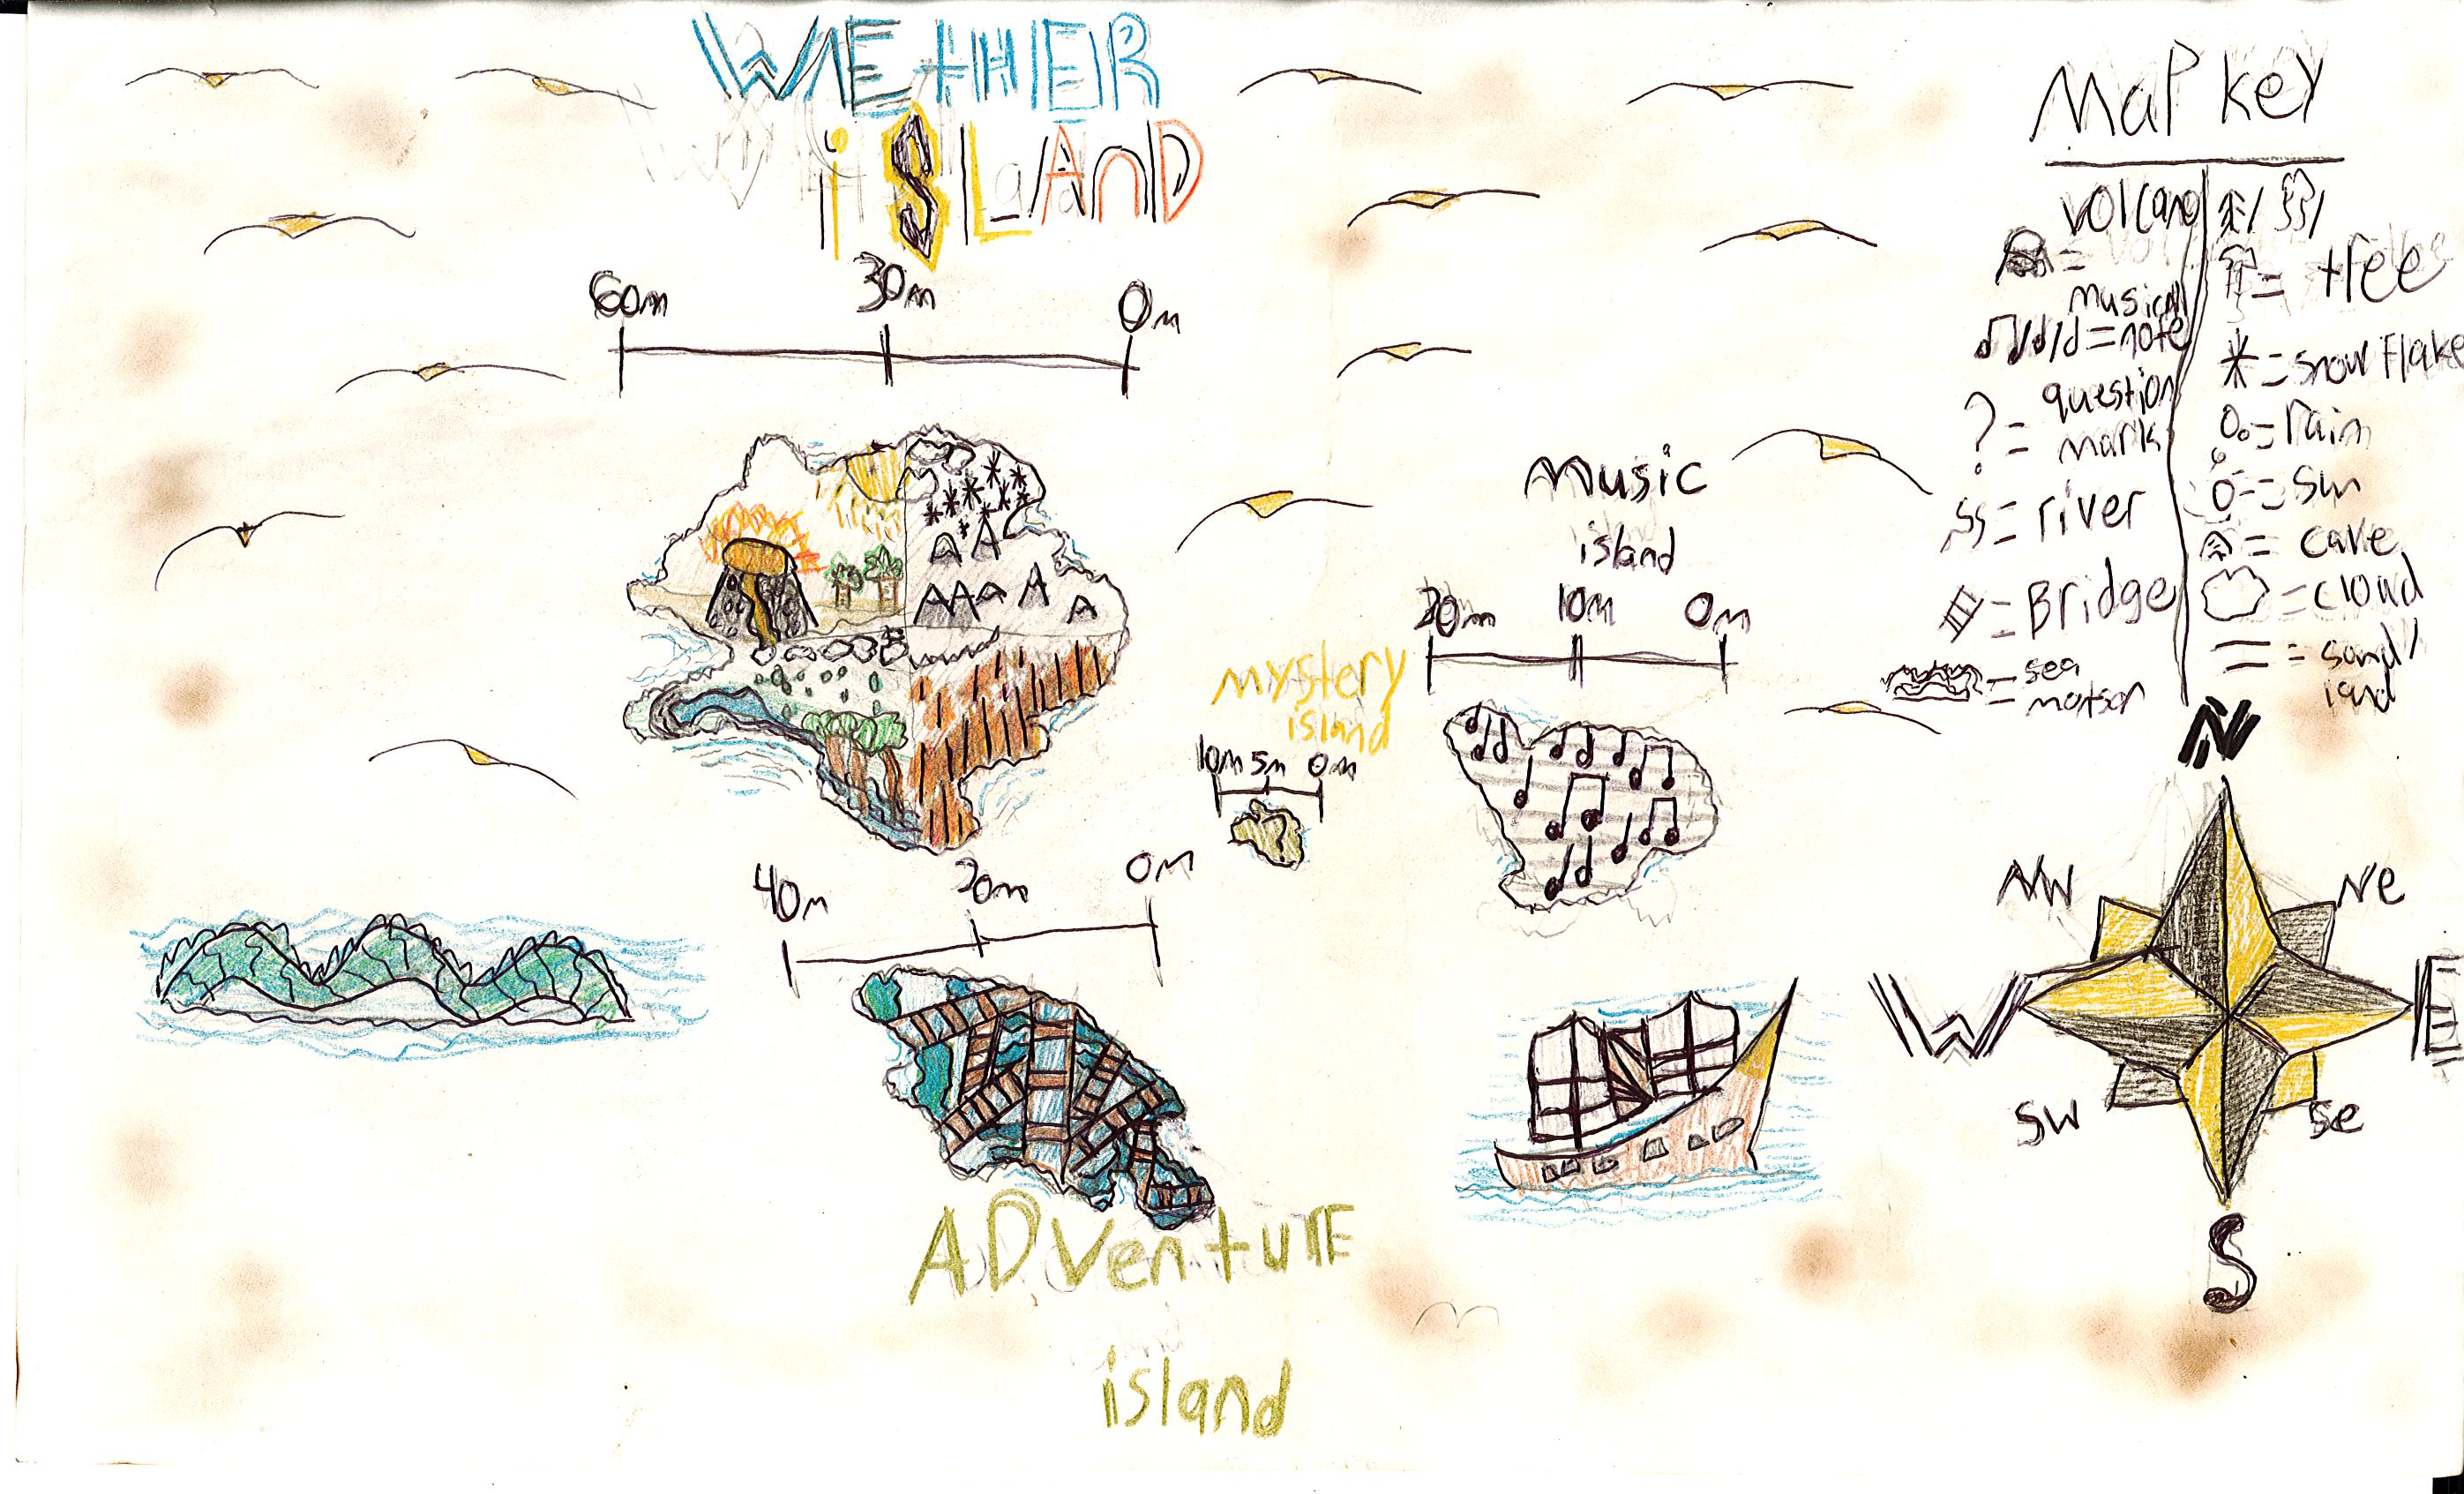 WETHER
iSLAND
60m 30m 0m
Music
island
20m 10m 0m
mystery
island
10m 5m 0m
40m 20m 0m
ADVenturE
island
Map key
volcano
=
musical
= note
? = question
mark
= river
= Bridge
= sea
= tree
= snow Flake
= rain
= Sun
= cave
= cloud
= sand/
land
N
NW Ne
W E
SW Se
S